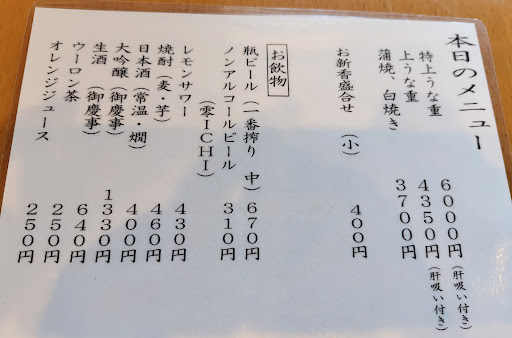 本日のメニュー
特上うな重 6000円(肝吸い付き)
上うな重 4350円(肝吸い付き)
蒲焼、白焼き 3700円
お新香盛合せ (小) 400円
お飲物
瓶ビール(一番搾り 中) 670円
ノンアルコールビール
(零ICHI) 310円
レモンサワー 430円
焼酎(麦・芋) 460円
日本酒(常温・燗) 400円
大吟醸(御慶事) 1330円
生酒(御慶事) 640円
ウーロン茶 250円
オレンジジュース 250円